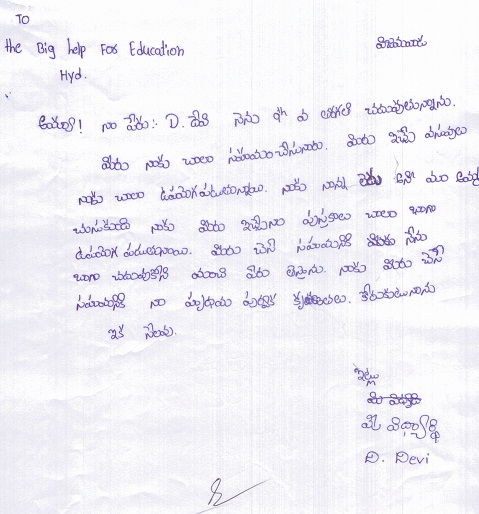 TO
the Big help For Education
విజయవాడ
Hyd.
అయ్యా! నా పేరు:- D. దేవి నేను 9th వ తరగతి చదువుతున్నాను.
మీరు నాకు చాలా సహాయంచేసినారు. మీరు ఇచ్చే వస్తువులు
నాకు చాలా ఉపయోగపడుతున్నాయి. నాకు నాన్న లేడు మా అమ్మ
నాకు మీరు ఇచ్చిన పుస్తకాలు చాలా బాగా
ఉపయోగ పడుతున్నాయి. మీరు చేసే సహయానికి నేను
బాగా చదువుకోని మంచి పేరు తెస్తాను. నాకు మీరు చేసే
సహయానికి నా హృదయ పూర్వక కృతజ్ఞతలు. కోరుకుంటున్నాను
ఇక సెలవు.
ఇట్లు
మీ విద్యార్థి
D. Devi